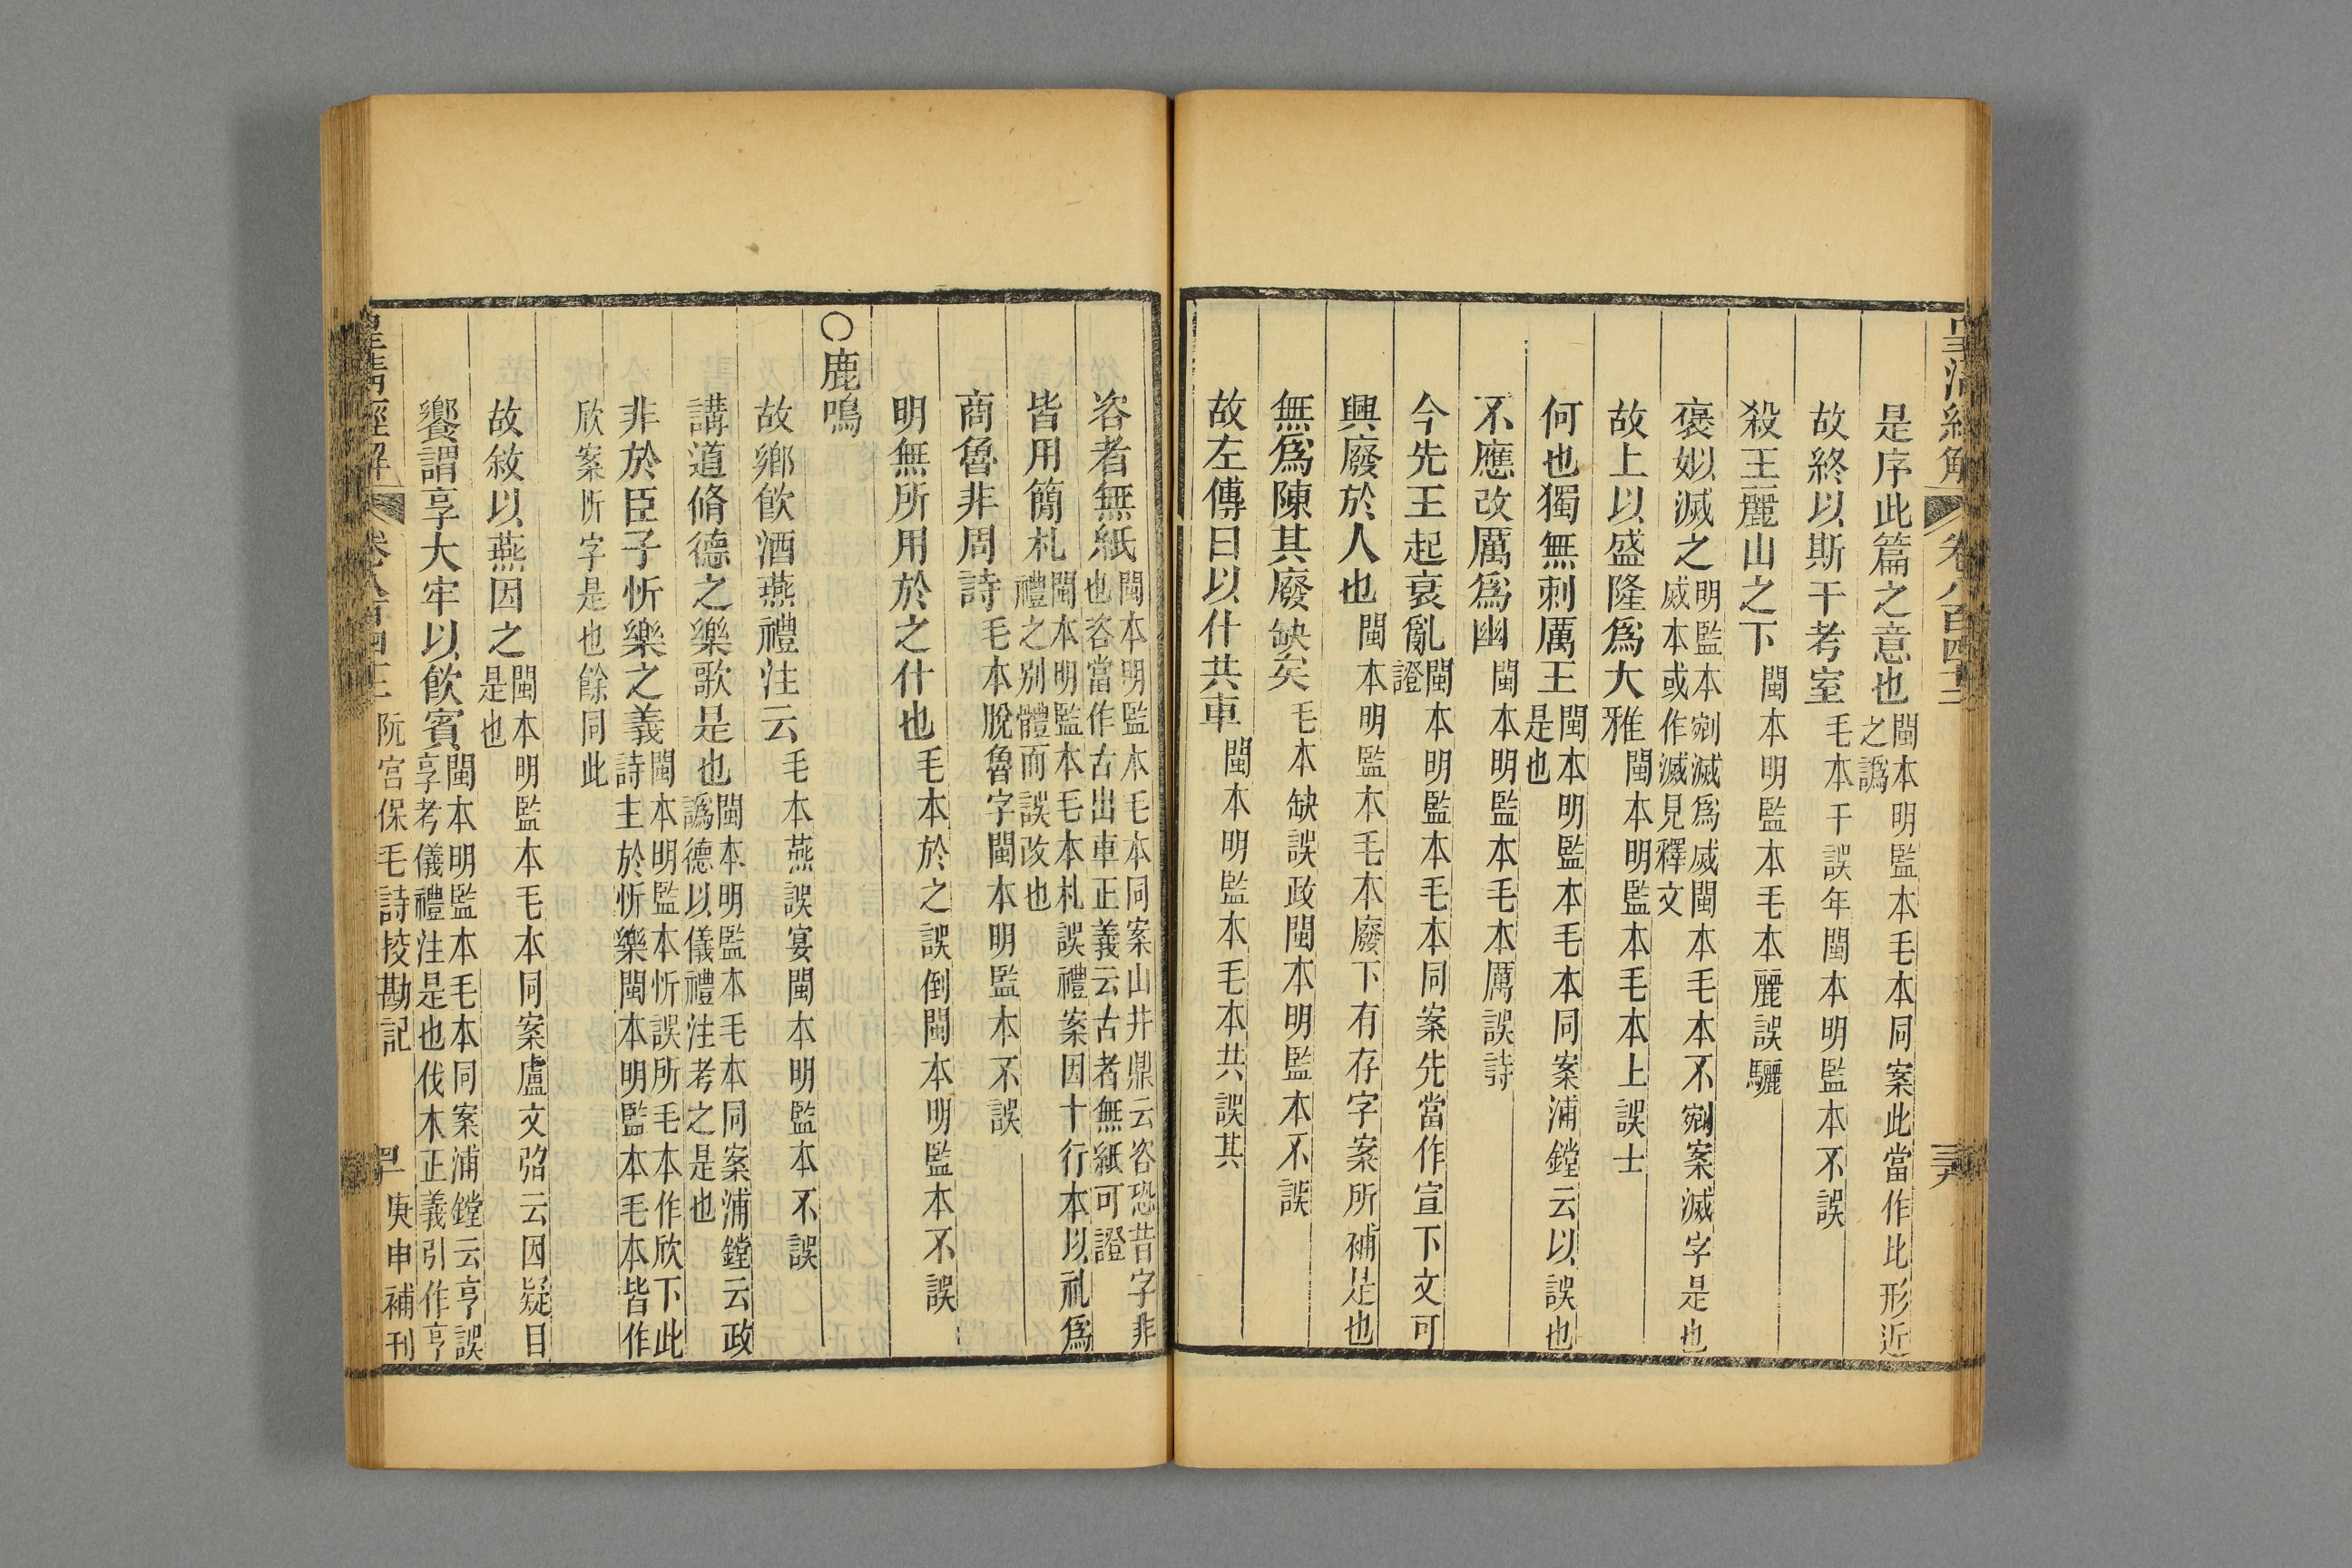 是序此篇之意也閩本明監本毛本同案此當作比形近之譌
故終以斯干考室毛本干誤年閩本明監本不誤
殺王麗山之下閩本明監本毛本麗誤驪
褒姒滅之明監本剜滅爲烕閩本毛本不剜案滅字是也烕本或作滅見釋文
故上以盛隆爲大雅閩本明監本毛本上誤士
何也獨無刺厲王閩本明監本毛本同案浦鏜云以誤也是也
不應改厲爲幽閩本明監本毛本厲誤詩
今先王起衰亂閩本明監本毛本同案先當作宣下文可證
興廢於人也閩本明監本毛本廢下有存字案所補是也
無爲陳其廢缺矣毛本缺誤政閩本明監本不誤
故左傳曰以什共車閩本明監本毛本共誤其
咨者無紙閩本明監本毛本同案山井鼎云咨恐昔字非也咨當作古出車正義云古者無紙可證
皆用簡札閩本明監本毛本札誤禮案因十行本以礼爲禮之別體而誤改也
商魯非周詩毛本脫魯字閩本明監本不誤
明無所用於之什也毛本於之誤倒閩本明監本不誤
○鹿鳴
故鄉飲酒燕禮注云毛本燕誤宴閩本明監本不誤
講道脩德之樂歌是也閩本明監本毛本同案浦鏜云政譌德以儀禮注考之是也
非於臣子忻樂之義閩本明監本忻誤所毛本作欣下此詩主於忻樂閩本明監本毛本皆作
欣案所字是也餘同此
故敘以燕因之閩本明監本毛本同案盧文弨云因疑目是也
饗謂享大牢以飲賓閩本明監本毛本同案浦鏜云亨誤享考儀禮注是也伐木正義引作亨
皇清經解 卷八百四十三 阮宮保毛詩挍勘記 庚申補刊